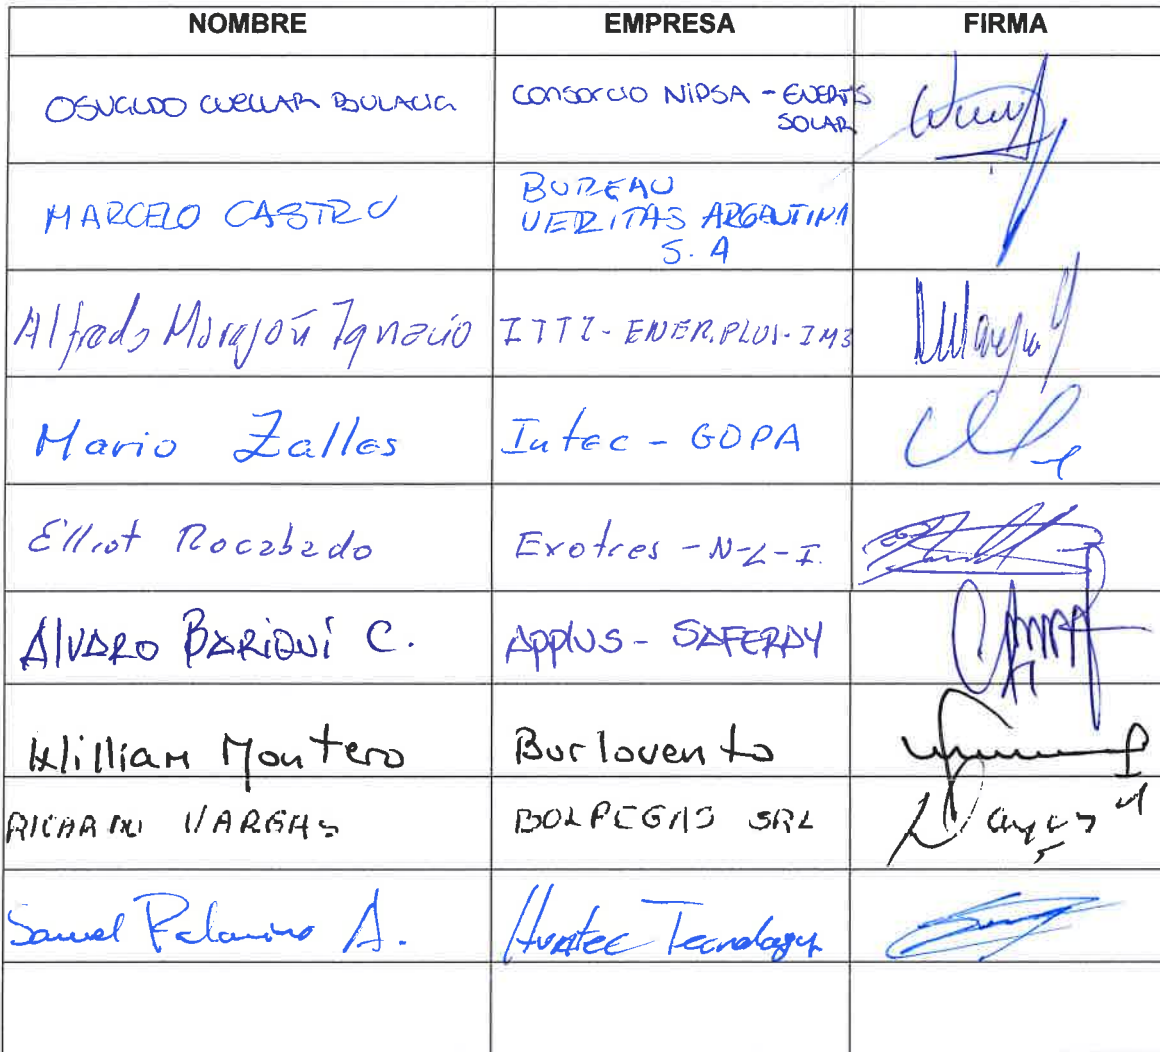 NOMBRE EMPRESA FIRMA
OSVALDO CUELLAR BULACIA CONSORCIO NIPSA - ENERTIS
SOLAR
MARCELO CASTRO BUREAU
VERITAS ARGENTINA
S.A
Alfredo Marajón Ignacio ITTI - ENER.PLUS - IM3
Mario Zalles Intec - GOPA
Elliot Rocabado Exotres - N-L-I.
Alvaro Bariqui C. Applus - SAFERAY
William Montero Barlovento
RICARDO VARGAS BOLPEGAS SRL
Samuel Palomino A.